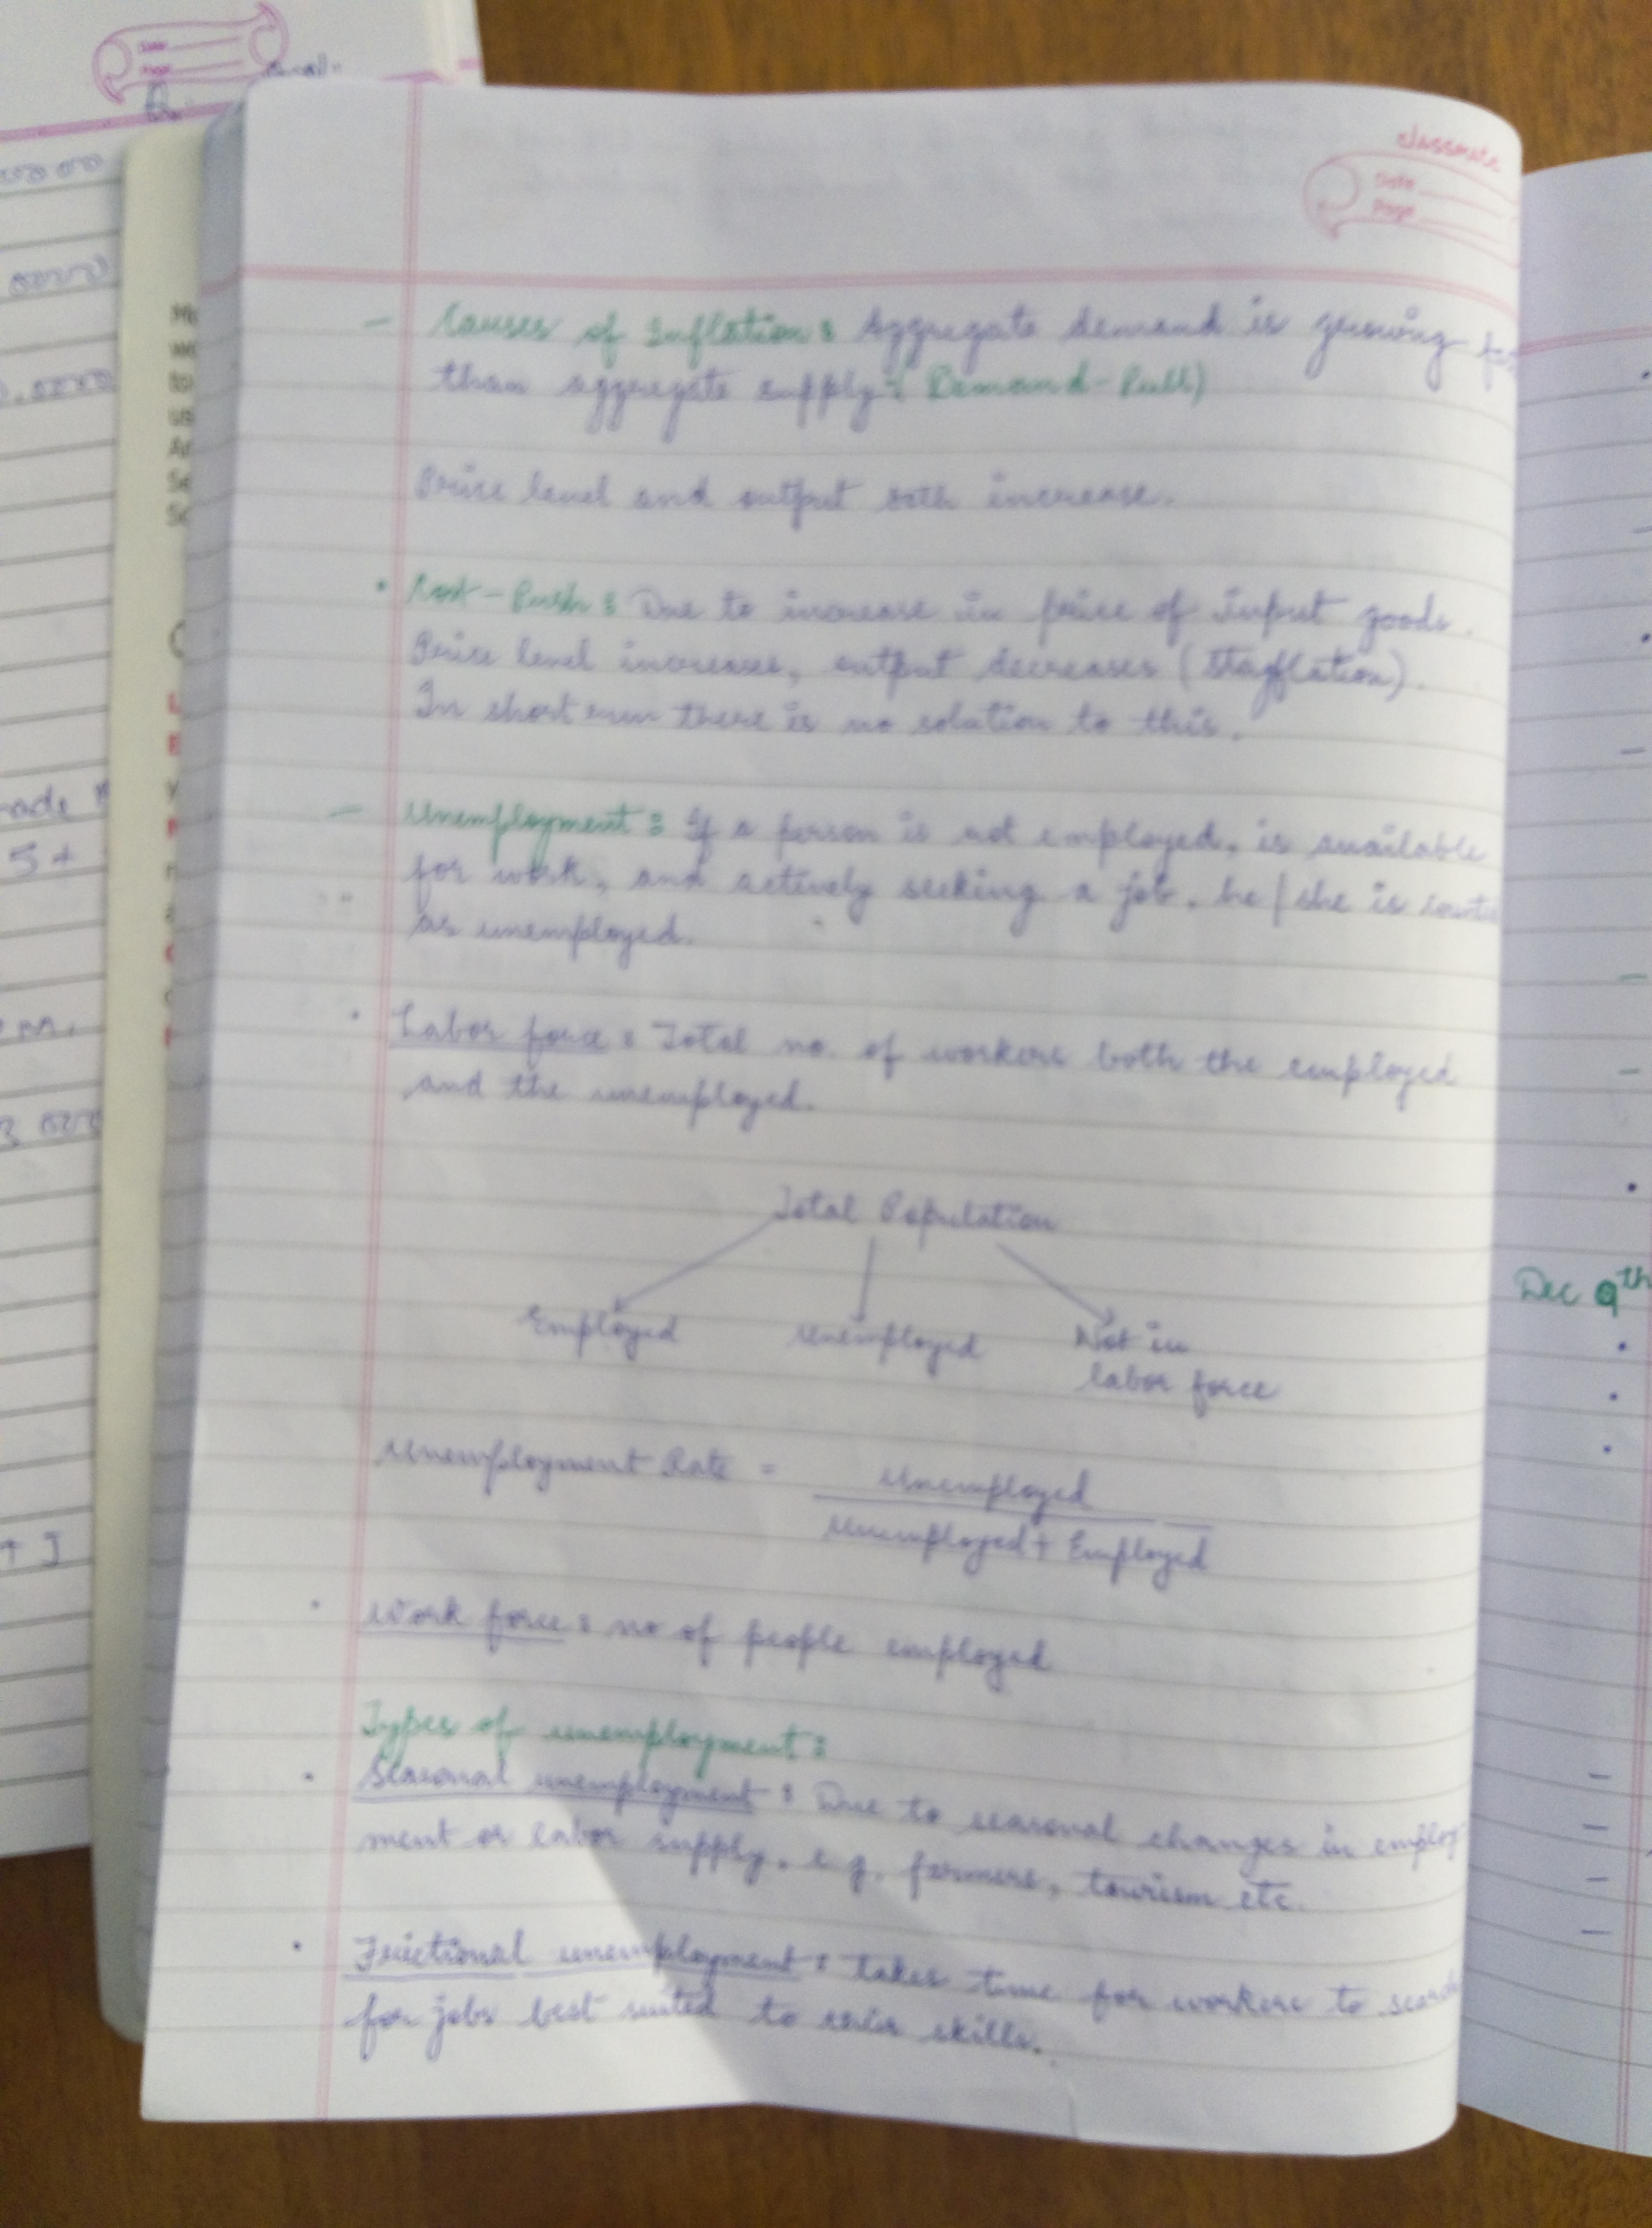 classmate
Date
Page
– Causes of Inflation : Aggregate demand is growing
than aggregate supply. (Demand-Pull)
Price level and output both increase.
• Cost-Push : Due to increase in price of input goods.
Price level increases, output decreases (stagflation).
In short run there is no solution to this.
– Unemployment : If a person is not employed, is available
for work, and actively seeking a job, he/she is
as unemployed.
• Labor force : Total no. of workers both the employed
and the unemployed.
Total Population
Employed Unemployed Not in
labor force
Unemployment Rate = Unemployed
Unemployed + Employed
• Work force : no of people employed
Types of unemployment :
• Seasonal unemployment : Due to seasonal changes in employ
ment or labor supply, e.g. farmers, tourism etc.
• Frictional unemployment : takes time for workers to search
for jobs best suited to their skills.
Dec 9th
Date
Page
5+